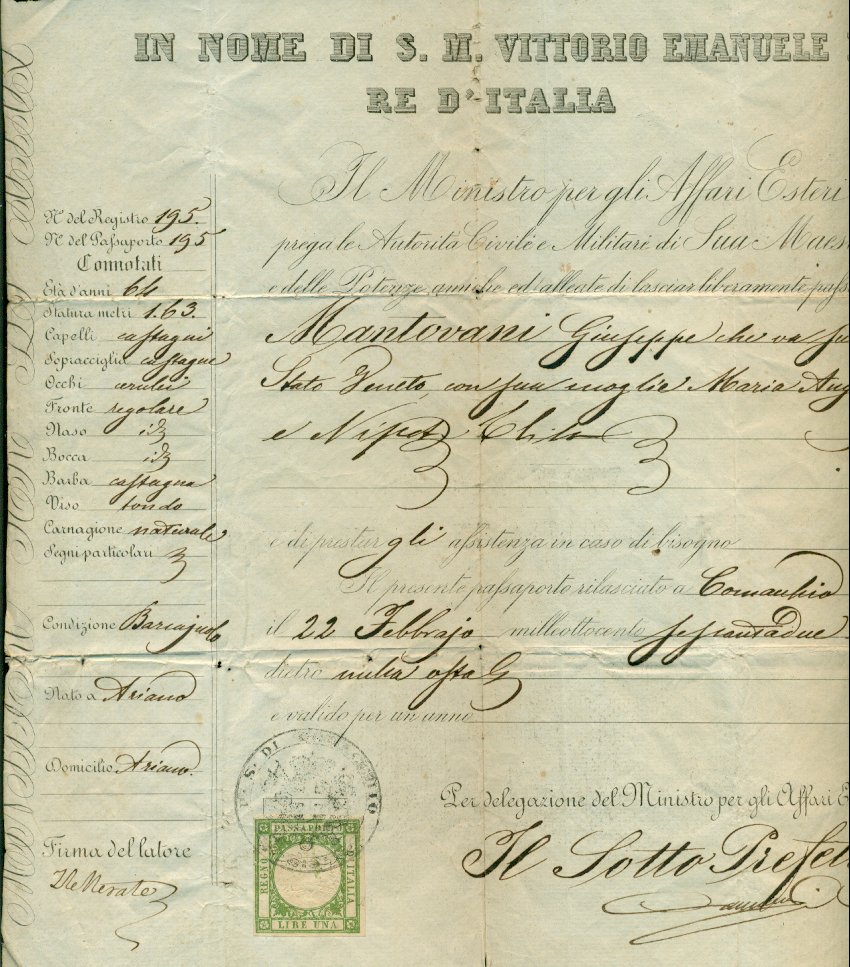 IN NOME DI S. M. VITTORIO EMANUELE
RE D'ITALIA
Il Ministro per gli Affari Esteri
prega le Autorità Civili e Militari di Sua Maes
e delle Potenze amiche ed alleate di lasciar liberamente pass
Mantovani Giuseppe che va
Stato Veneto, con sua moglie Maria Aug
e Nipote
e di prestargli assistenza in caso di bisogno
Il presente passaporto rilasciato a Comacchio
il 22 Febbrajo milleottocento sessantadue
dietro nulla osta
e valido per un anno
Per delegazione del Ministro per gli Affari E
Il Sotto Prefet
N° del Registro 195.
N° del Passaporto 195
Connotati
Età d'anni 64
Statura metri 1.63.
Capelli castagni
Sopracciglia castagne
Occhi cerulei
Fronte regolare
Naso id
Bocca id
Barba castagna
Viso tondo
Carnagione naturale
Segni particolari
Condizione Barcajuolo
Nato a Ariano
Domicilio Ariano.
Firma del latore
P. S. DI
PASSAPORTI
REGNO
D'ITALIA
LIRE UNA